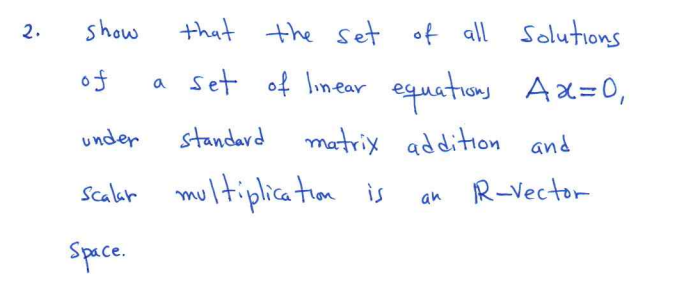 2. show that the set of all solutions
of a set of linear equations Ax=0,
under standard matrix addition and
scalar multiplication is an ℝ-vector
space.